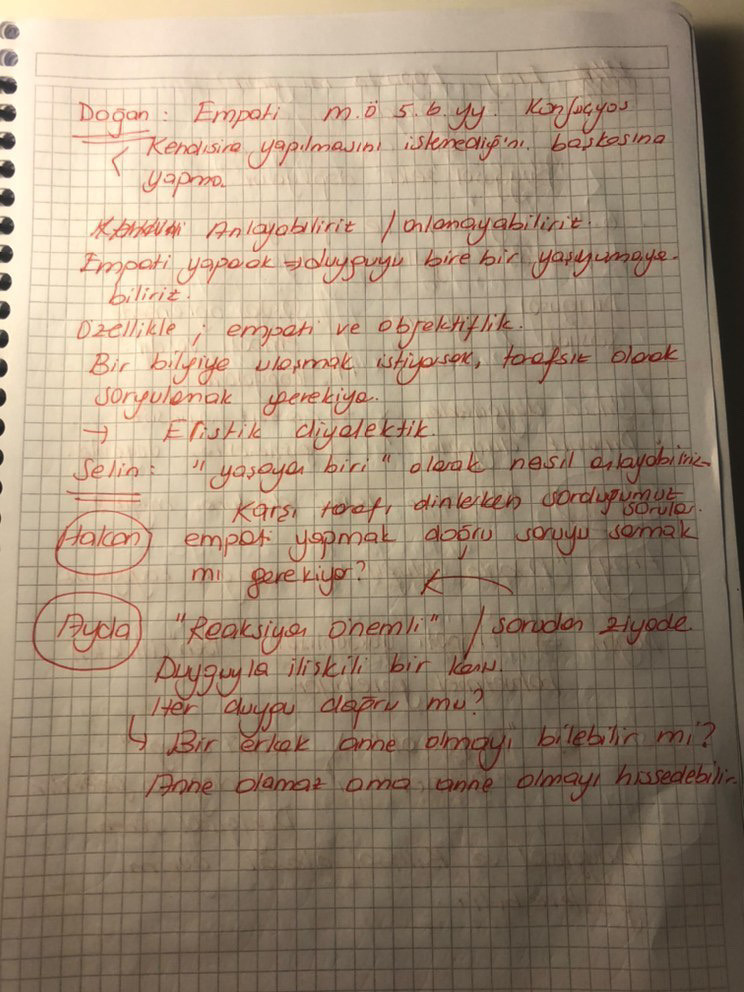 Doğan : Empati m.ö 5.6.yy. Konfüçyos
Kendisine yapılmasını istemediğini başkasına
yapma.
Anlayabiliriz / anlamayabiliriz.
Empati yaparak → duyguyu bire bir yaşayamaya-
biliriz.
Özellikle ; empati ve objektiflik.
Bir bilgiye ulaşmak istiyorsak, tarafsız olarak
sorgulamak gerekiyo.
→ Eristik diyalektik.
Selin : "yaşayan biri" olarak nasıl anlayabiliriz
Karşı tarafı dinlerken sorduğumuz
sorular.
Hakan empati yapmak doğru soruyu sormak
mı gerekiyor?
Ayda "Reaksiyon önemli" / sorudan ziyade
Duyguyla ilişkili bir
Her duygu doğru mu?
↳ Bir erkek anne olmayı bilebilir mi?
Anne olamaz ama anne olmayı hissedebilir.